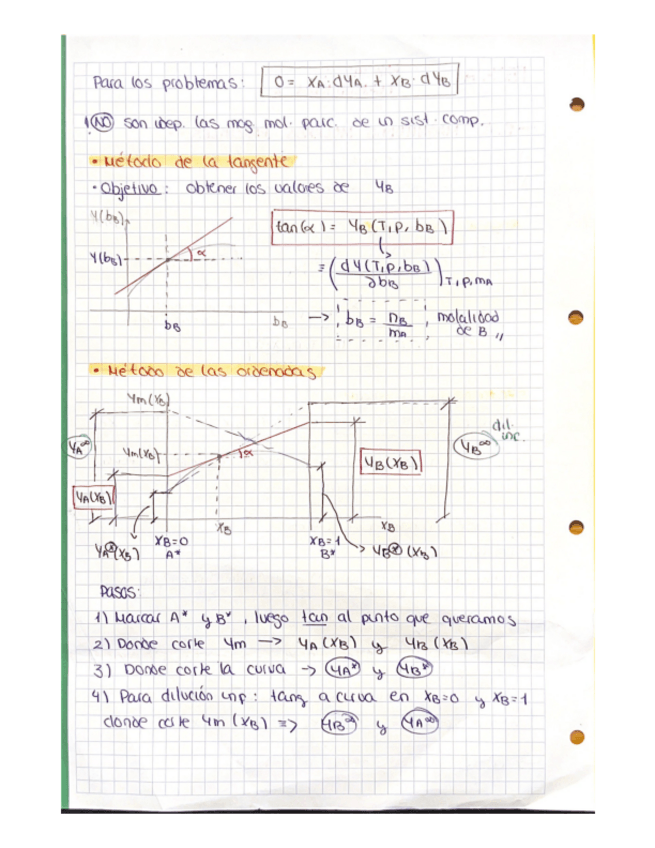 Para los problemas: 0 = XA·dYA + XB·dYB
NO son indep. las mag. mol. parc. de un sist. comp.
• Método de la tangente
· Objetivo: obtener los valores de YB
Y(bB)
Y(bB)
α
bB
bB
tan(α) = YB (T,P, bB)
= (dY(T,P,bB) / ∂bB) T,P,mA
→ bB = nB / mA, molalidad de B
• Método de las ordenadas
Ym(XB)
YA∞
Ym(XB)
α
YA(XB)
YB(XB)
YB∞
dil. inc.
XB
XB
XB=0
A*
XB=1
B*
YA*(XB)
YB*(XB)
Pasos:
1) Marcar A* y B*, luego tan al punto que queramos
2) Donde corte Ym → YA(XB) y YB(XB)
3) Donde corte la curva → YA* y YB*
4) Para dilución inf: tang a curva en XB=0 y XB=1
donde corte Ym(XB) => YB∞ y YA∞